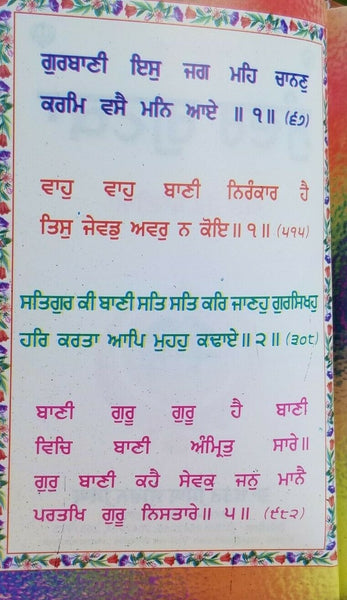 ਗੁਰਬਾਣੀ ਇਸੁ ਜਗ ਮਹਿ ਚਾਨਣੁ
ਕਰਮਿ ਵਸੈ ਮਨਿ ਆਏ ॥ ੧॥ (੬੭)
ਵਾਹੁ ਵਾਹੁ ਬਾਣੀ ਨਿਰੰਕਾਰ ਹੈ
ਤਿਸੁ ਜੇਵਡੁ ਅਵਰੁ ਨ ਕੋਇ॥ ੧॥ (੫੧੫)
ਸਤਿਗੁਰ ਕੀ ਬਾਣੀ ਸਤਿ ਸਤਿ ਕਰਿ ਜਾਣਹੁ ਗੁਰਸਿਖਹੁ
ਹਰਿ ਕਰਤਾ ਆਪਿ ਮੁਹਹੁ ਕਢਾਏ॥ ੨॥ (੩੦੮)
ਬਾਣੀ ਗੁਰੂ ਗੁਰੂ ਹੈ ਬਾਣੀ
ਵਿਚਿ ਬਾਣੀ ਅੰਮ੍ਰਿਤੁ ਸਾਰੇ॥
ਗੁਰੁ ਬਾਣੀ ਕਹੈ ਸੇਵਕੁ ਜਨੁ ਮਾਨੈ
ਪਰਤਖਿ ਗੁਰੂ ਨਿਸਤਾਰੇ॥ ੫॥ (੯੮੨)